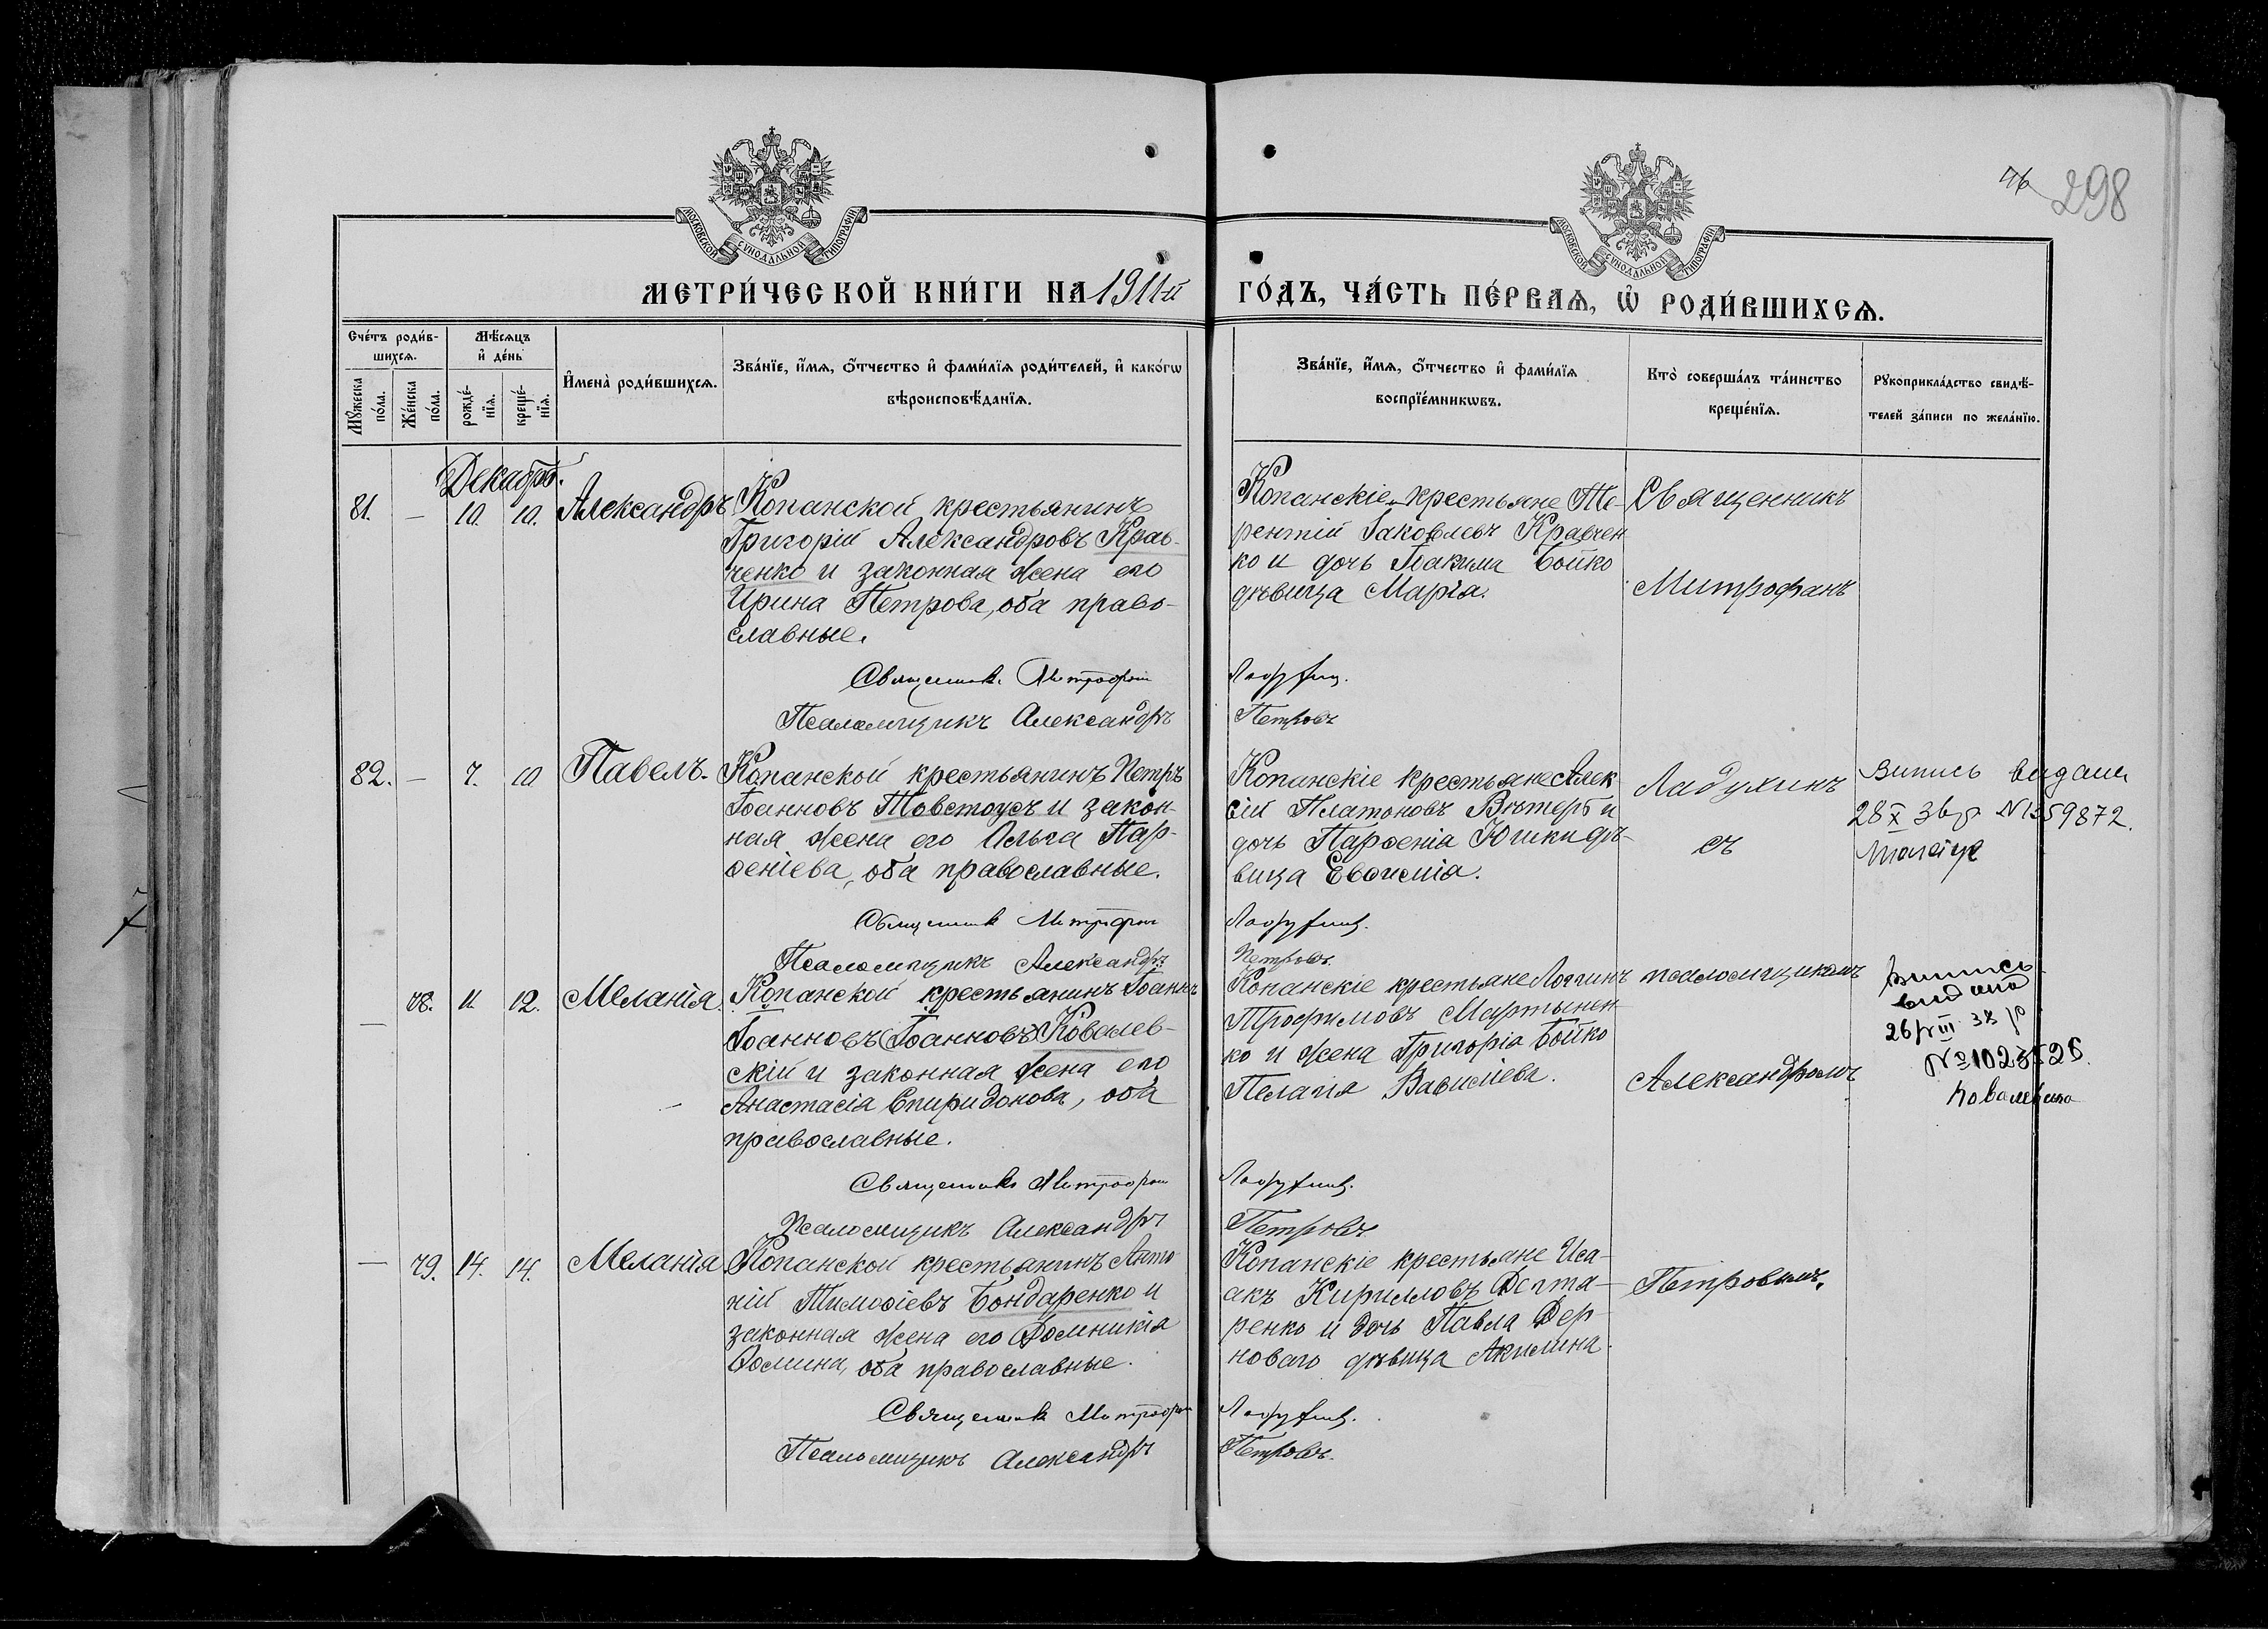 46 298
МОСКОВСКОЙ СѴНОДАЛЬНОЙ ТИПОГРАФІИ
МОСКОВСКОЙ СѴНОДАЛЬНОЙ ТИПОГРАФІИ
МЕТРИ́ЧЕСКОЙ КНИ́ГИ НА 1911-й
ГО́ДЪ, ЧА́СТЬ ПЕ́РВАѦ, Ѡ҆ РОДИ́ВШИХСѦ.
Сче́тъ роди́в-
шихсѧ.
Мꙋ́жеска
по́ла.
Же́нска
по́ла.
Мѣ́сѧцъ
и҆ де́нь
рожде́-
нїѧ.
креще́-
нїѧ.
И҆мена̀ роди́вшихсѧ.
Зва́нїе, и҆́мѧ, ѻ҆́тчество и҆ фами́лїѧ роди́телей, и҆ како́гѡ
вѣроисповѣ́данїѧ.
Зва́нїе, и҆́мѧ, ѻ҆́тчество и҆ фами́лїѧ
воспрїе́мникѡвъ.
Кто̀ соверша́лъ та́инство
креще́нїѧ.
Рꙋкоприкла́дство свидѣ́-
телей за́писи по жела́нїю.
Декабрь.
81. — 10. 10. Александръ
Копанской крестьянинъ
Григорій Александровъ Крав-
ченко и законная жена его
Ирина Петрова, оба право-
славные.
Священникъ Митрофанъ
Псаломщикъ Александръ
Копанскіе крестьяне Те-
рентій Іаковлевъ Кравчен
ко и дочь Іоакима Бойко
дѣвица Марія.
Ладухинъ.
Петровъ
Священникъ
Митрофанъ
82. — 7. 10 Павелъ.
Копанской крестьянинъ Петръ
Іоанновъ Товстоусъ и закон-
ная жена его Ольга Пар-
ѳеніева, оба православные.
Священникъ Митрофанъ
Псаломщикъ Александръ
Копанскіе крестьяне Алек
сій Платоновъ Вѣтеръ и
дочь Парѳенія Юшки дѣ-
вица Евѳимія.
Ладухинъ.
Петровъ.
Ладухинъ
съ
Випись видана
28 X 36 р № 359872.
— 78. 11. 12. Меланія.
Копанской крестьянинъ Іоаннъ
Іоанновъ (Іоанновъ) Ковалев-
скій и законная жена его
Анастасія Спиридонова, оба
православные.
Священникъ Митрофанъ
Псаломщикъ Александръ
Копанскіе крестьяне Логгинъ
Трофимовъ Мартынен
ко и жена Григорія Бойко
Пелагія Вавилiева.
Ладухинъ.
Петровъ
псаломщикомъ
Александромъ
випись
видана
26/III 38 р
— 79. 14. 14. Меланія
Копанской крестьянинъ Анто
ній Тимоѳіевъ Бондаренко и
законная жена его Домникія
Ѳомина, оба православные.
Священникъ Митрофанъ
Псаломщикъ Александръ
Копанскіе крестьяне Иса-
акъ Кирилловъ Дегтя-
ренко и дочь Павла Дер
новаго дѣвица Акилина.
Ладухинъ.
Петровъ.
Петровымъ.